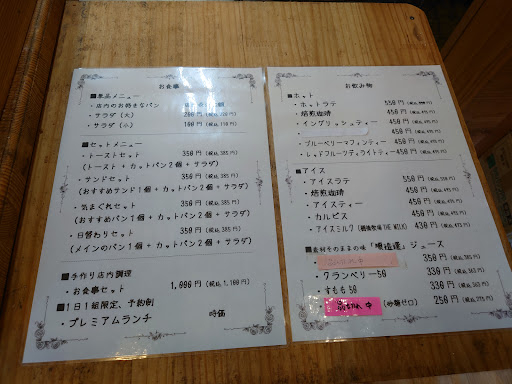 お食事
■単品メニュー
・店内のお好きなパン
・サラダ(大) 200円
・サラダ(小) 100円(税込 110円)
■セットメニュー
・トーストセット 350円(税込 385円)
(トースト + カットパン2個 + サラダ)
・サンドセット 350円(税込 385円)
(おすすめサンド1個 + カットパン2個 + サラダ)
・気まぐれセット 350円(税込 385円)
(おすすめパン1個 + カットパン2個 + サラダ)
・日替わりセット 350円(税込 385円)
(メインのパン1個 + カットパン2個 + サラダ)
■手作り店内調理
・お食事セット 1,000円(税込 1,100円)
■1日1組限定、予約制
・プレミアムランチ 時価
お飲み物
■ホット
・ホットラテ 550円
・焙煎珈琲 450円(税込 495円)
・イングリッシュティー 450円(税込 495円)
・ブルーベリーマフィンティー 450円(税込 495円)
・レッドフルーツティライトティー 450円(税込 495円)
■アイス
・アイスラテ 550円
・焙煎珈琲 450円(税込 495円)
・アイスティー 450円(税込 495円)
・カルピス 450円(税込 495円)
・アイスミルク 450円(税込 495円)
■素材そのままの味 ジュース
350円(税込 385円)
・クランベリー50 330円(税込 363円)
・すもも50 330円(税込 363円)
品切れ中 (砂糖ゼロ) 250円(税込 275円)